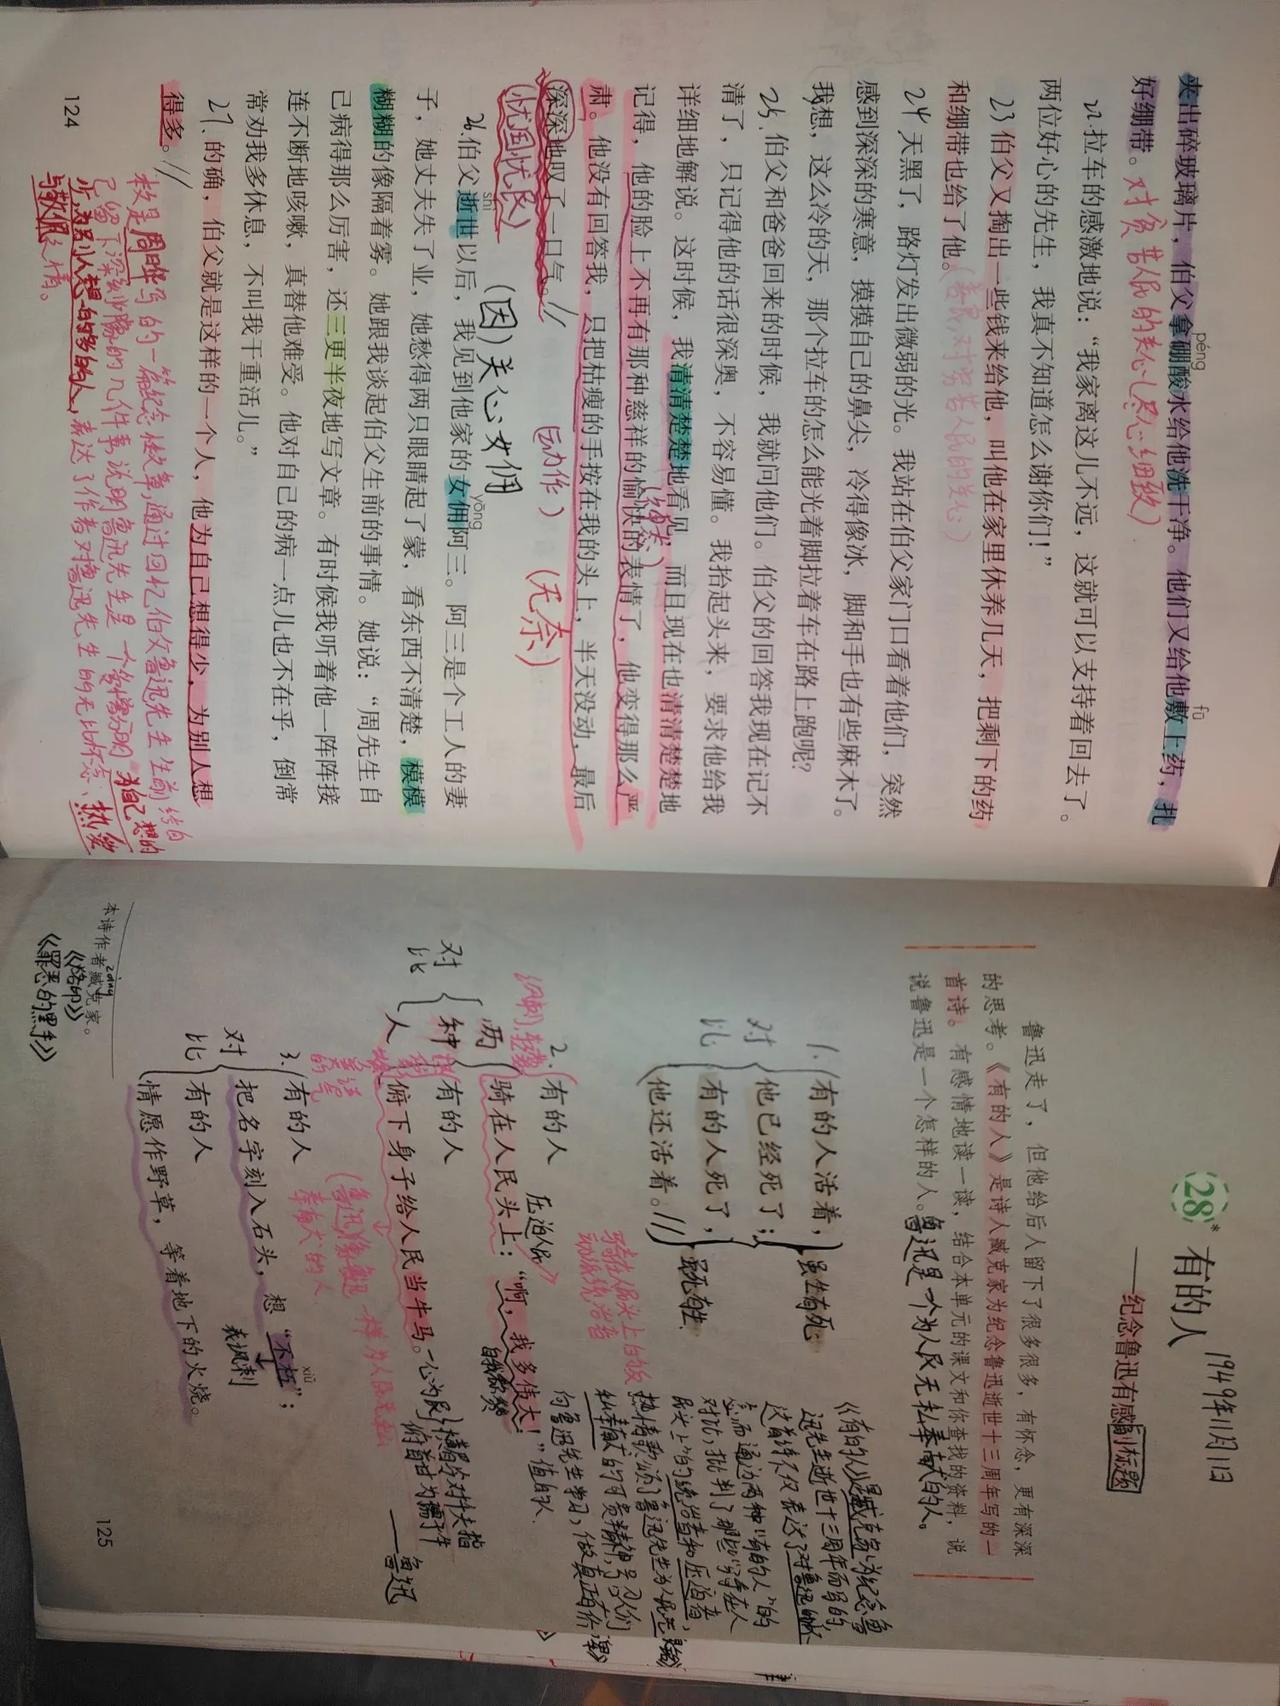 夹出碎玻璃片，伯父拿硼酸水给他洗干净。他们又给他敷上药，扎
péng
fū
好绷带。对贫苦人民的关心
22.拉车的感激地说：“我家离这儿不远，这就可以支持着回去了。
两位好心的先生，我真不知道怎么谢你们！”
23 伯父又掏出一些钱来给他，叫他在家里休养几天，把剩下的药
和绷带也给了他。
24 天黑了，路灯发出微弱的光。我站在伯父家门口看着他们，突然
感到深深的寒意，摸摸自己的鼻尖，冷得像冰，脚和手也有些麻木了。
我想，这么冷的天，那个拉车的怎么能光着脚拉着车在路上跑呢？
25.伯父和爸爸回来的时候，我就问他们。伯父的回答我现在记不
清了，只记得他的话很深奥，不容易懂。我抬起头来，要求他给我
详细地解说。这时候，我清清楚楚地看见，而且现在也清清楚楚地
记得，他的脸上不再有那种慈祥的愉快的表情了，他变得那么严
肃。他没有回答我，只把枯瘦的手按在我的头上，半天没动，最后
深深地叹了一口气。//
（动作）
（无奈）
（忧国忧民）
（因）关心女佣
26.伯父逝世以后，我见到他家的女佣阿三。阿三是个工人的妻
shì
yōng
子，她丈夫失了业，她愁得两只眼睛起了蒙，看东西不清楚，模模
糊糊的像隔着雾。她跟我谈起伯父生前的事情。她说：“周先生自
己病得那么厉害，还三更半夜地写文章。有时候我听着他一阵阵接
连不断地咳嗽，真替他难受。他对自己的病一点儿也不在乎，倒常
常劝我多休息，不叫我干重活儿。”
27.的确，伯父就是这样的一个人，他为自己想得少，为别人想
得多。//
本文是周晔写的一篇纪念性文章，通过回忆伯父鲁迅先生生前给自
己留下深刻印象的几件事，说明鲁迅先生是一个爱憎分明，为自己想的
少，为别人想的多的人，表达了作者对鲁迅先生的无比怀念、热爱
与敬佩之情。
124
28*
有的人
1949年11月1日
——纪念鲁迅有感
副标题
鲁迅走了，但他给后人留下了很多很多，有怀念，更有深深
的思考。《有的人》是诗人臧克家为纪念鲁迅逝世十三周年写的一
首诗。有感情地读一读，结合本单元的课文和你查找的资料，说
说鲁迅是一个怎样的人。鲁迅是一个为人民无私奉献的人。
1.有的人活着，
他已经死了；
虽生犹死
有的人死了，
他还活着。//
虽死犹生
对比
2.有的人
骑在人民头上：“啊，我多伟大！”
压迫人民
有的人
俯下身子给人民当牛马。
两种人
对比
横眉冷对千夫指
俯首甘为孺子牛
——鲁迅
3.有的人
把名字刻入石头，想“不朽”；
xiǔ
讽刺
有的人
情愿作野草，等着地下的火烧。
对比
本诗作者臧克家。
zāng
《烙印》
《罪恶的黑手》
125